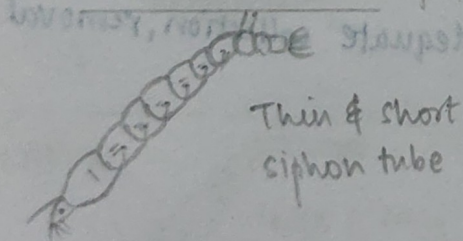 Thin & short
siphon tube